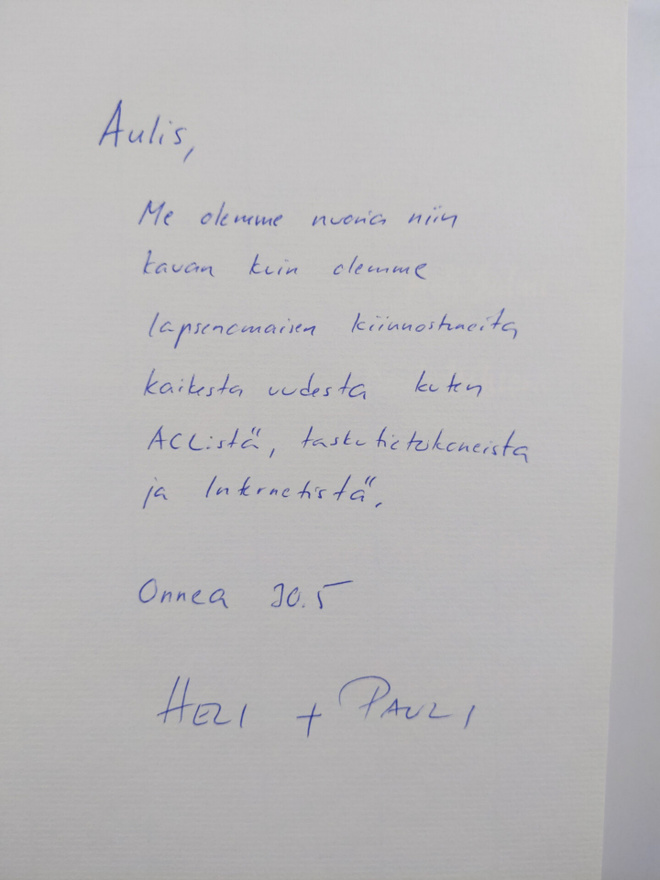 Aulis,
Me olemme nuoria niin
kauan kuin olemme
lapsenomaisen kiinnostuneita
kaikesta uudesta kuten
ACL:istä, taskutietokoneista
ja Internetistä.
Onnea 30.5
HELI + PAULI